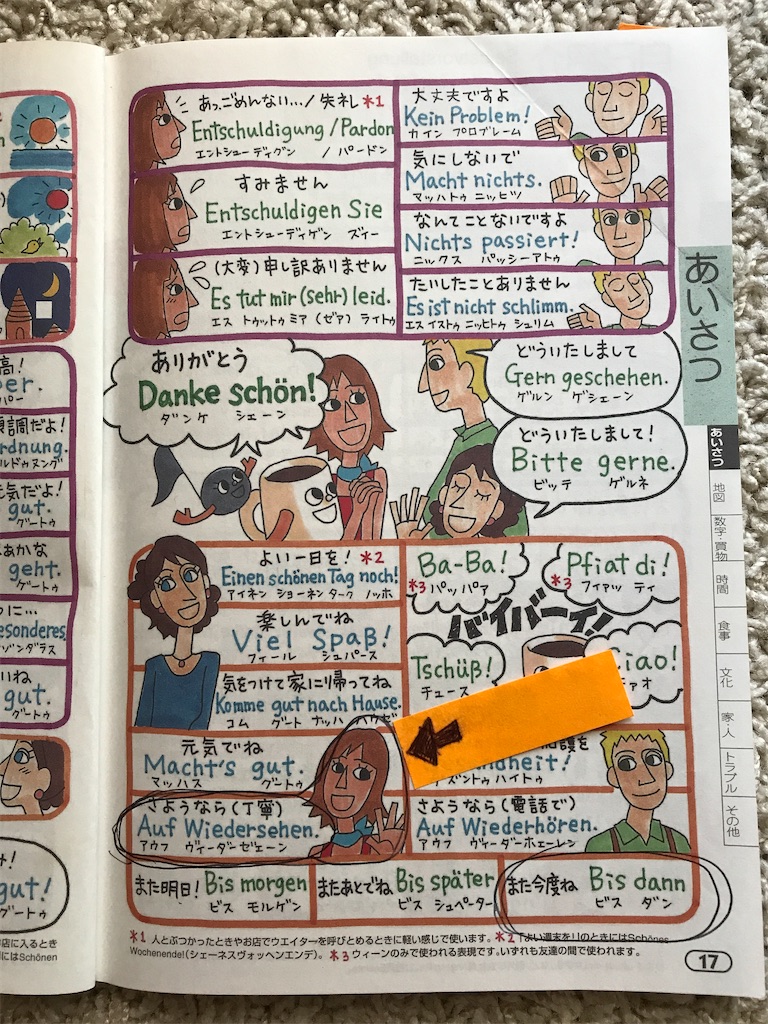 高!
per.
パー
順調だよ!
rdnung.
ルドゥヌング
元気だよ!
gut.
グートゥ
geht.
ゲートゥ
に...
esonderes.
ゾンダラス
いいね
gut.
グートゥ
gut!
グートゥ
店に入るとき
にはSchönen
あっ、ごめんない.../失礼 *1
Entschuldigung /Pardon
エントシューディグン / パードン
すみません
Entschuldigen Sie
エントシューディゲン ズィー
(大変)申し訳ありません
Es tut mir (sehr) leid.
エス トゥットゥ ミア (ゼア) ライトゥ
大丈夫ですよ
Kein Problem!
カイン プロブレーム
気にしないで
Macht nichts.
マッハトゥ ニッヒツ
なんてことないですよ
Nichts passiert!
ニックス パッシーアトゥ
たいしたことありません
Es ist nicht schlimm.
エス イストゥ ニッヒトゥ シュリム
ありがとう
Danke schön!
ダンケ シェーン
どういたしまして
Gern geschehen.
ゲルン ゲシェーン
どういたしまして!
Bitte gerne.
ビッテ ゲルネ
よい一日を! *2
Einen schönen Tag noch!
アイネン ショーネン ターク ノッホ
楽しんでね
Viel Spaß!
フィール シュパース
気をつけて家に帰ってね
Komme gut nach Hause.
コム グート ナッハ ハウゼ
Ba-Ba!
*3 バッバア
Pfiat di!
*3 フィアッ ティ
バイバーイ!
Tschüß!
チュース
Ciao!
チャオ
元気でね
Macht's gut.
マッハス グートゥ
加護を
ndheit!
ズントゥハイトゥ
さようなら(丁寧)
Auf Wiedersehen.
アウフ ヴィーダーゼェーン
さようなら(電話で)
Auf Wiederhören.
アウフ ヴィーダーホェーレン
また明日! Bis morgen
ビス モルゲン
またあとでね Bis später
ビス シュペーター
また今度ね Bis dann
ビス ダン
*1 人とぶつかったときやお店でウエイターを呼びとめるときに軽い感じで使います。*2「よい週末を!」のときにはSchönes
Wochenende!(シェーネスヴォッヘンエンデ)。*3 ウィーンのみで使われる表現です。いずれも友達の間で使われます。
17
あいさつ
あいさつ
地図
数字・買物
時間
食事
文化
家・人
トラブル
その他